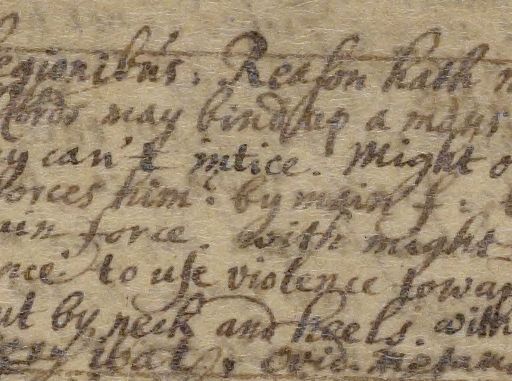 legionibus. Reason hath n
Cords may bind up a mans
y can't intice. Might o
forces him. by main f: 
ain force. with might
nce. to use violence towar
ut by neck and heels. with
that, Ovid. Metam